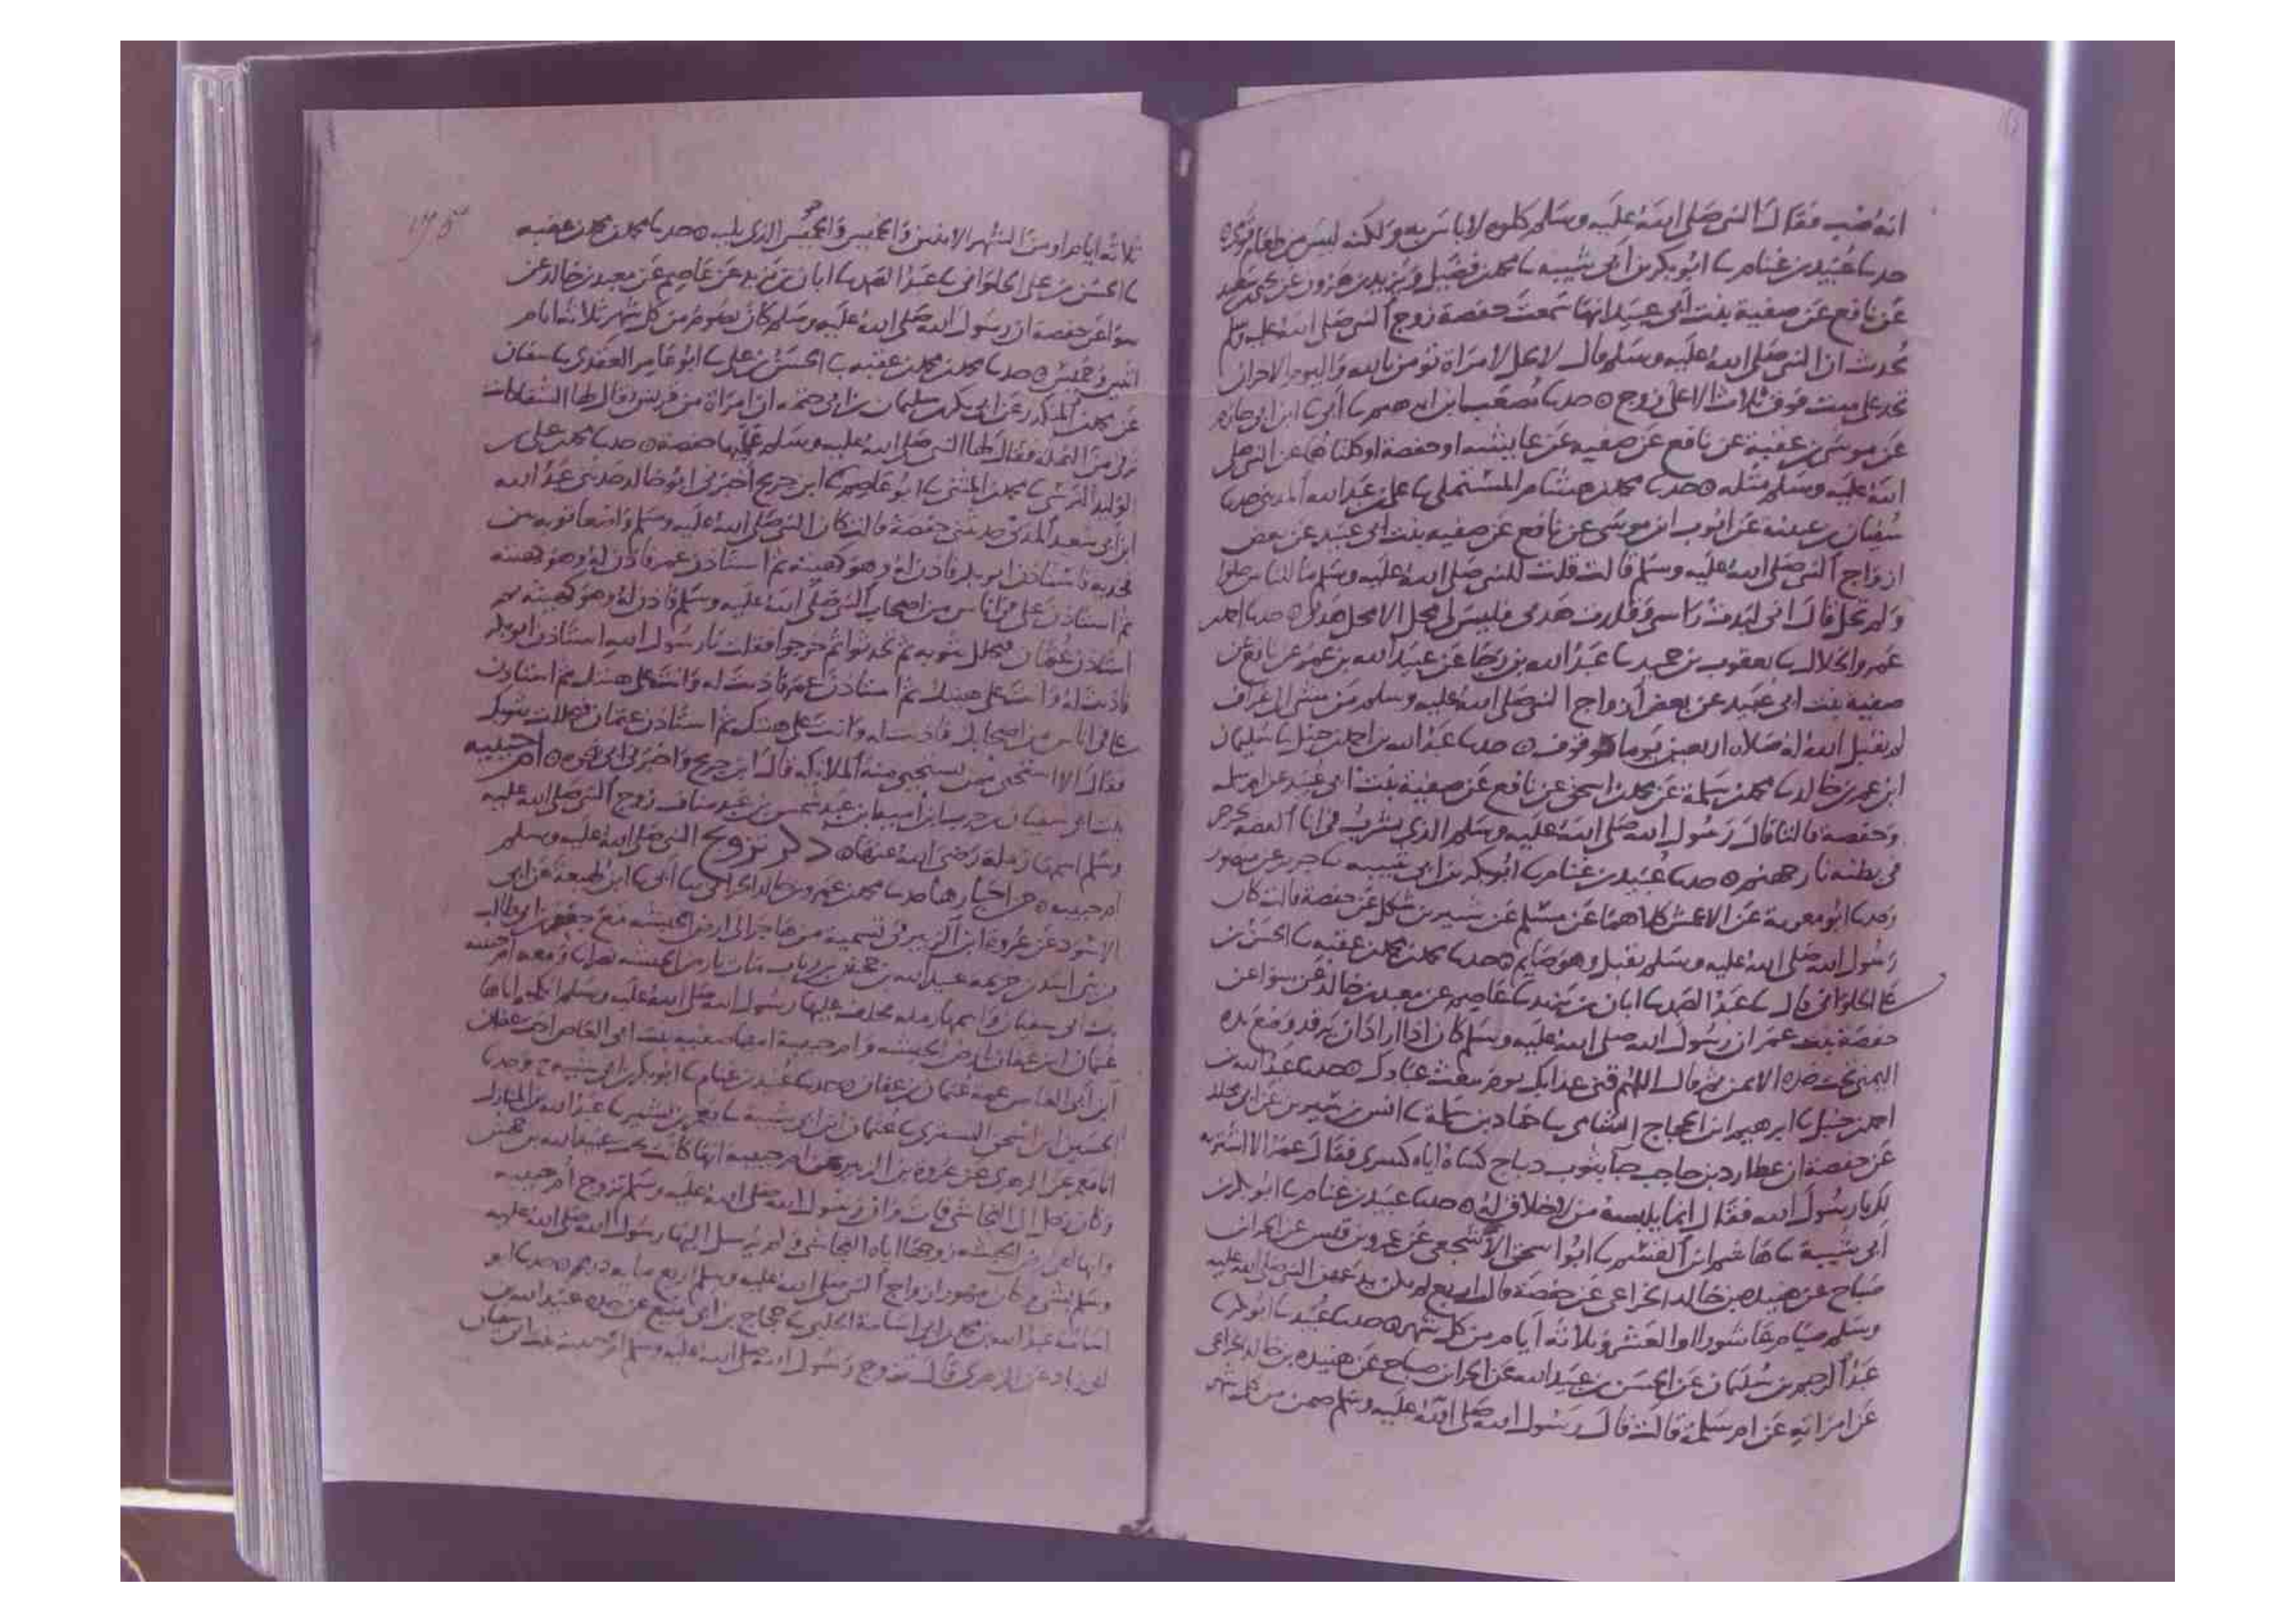 انه ضب فقال النبي صلى الله عليه وسلم كلوه لا باس به ولكنه ليس من طعام قومي
حدثنا عبيد بن غنام ثنا ابو بكر بن ابي شيبه ثنا محمد بن فضيل ويزيد بن هرون عن يحيى بن سعيد
عن نافع عن صفية بنت ابي عبيد انها سمعت حفصة زوج النبي صلى الله عليه وسلم
تحدث ان النبي صلى الله عليه وسلم قال لا يحل لامراة تومن بالله واليوم الاخر ان
تحد على ميت فوق ثلاث الا على زوج ه حدثنا مصعب بن ابراهيم ثنا ابي ثنا ابن ابي حازم
عن موسى بن عقبة عن نافع عن صفيه عن عايشه او حفصة او كلتاهما عن النبي صلى
الله عليه وسلم مثله ه حدثنا محمد بن هشام المستملي ثنا علي بن عبد الله المديني حدثنا
سفيان بن عيينه عن ايوب ابن موسى عن نافع عن صفيه بنت ابي عبيد عن بعض
ازواج النبي صلى الله عليه وسلم قالت قلت للنبي صلى الله عليه وسلم ما للناس حلوا
ولم تحل قال اني لبدت راسي وقلدت هديي فليس لي محل الا محل هديي ه حدثنا احمد بن
عمرو الخلال ثنا يعقوب بن حميد ثنا عبد الله بن رجا عن عبيد الله بن عمر عن نافع عن
صفية بنت ابي عبيد عن بعض ازواج النبي صلى الله عليه وسلم من مشى الى عراف
لم تقبل الله له صلاه اربعين يوما موقوف ه حدثنا عبد الله بن احمد بن حنبل ثنا سليمان
ابن عمر بن خالد ثنا محمد بن سلمة عن محمد بن اسحق عن نافع عن صفية بنت ابي عبيد عن ام سلمه
وحفصة قالتا قال رسول الله صلى الله عليه وسلم الذي يشرب في انا الفضه يجرجر
في بطنه نار جهنم ه حدثنا عبيد بن غنام ثنا ابو بكر بن ابي شيبه ثنا جرير عن منصور
وحدثنا ابو معوية عن الاعمش كلاهما عن مسلم عن شتير بن شكل عن حفصة قالت كان
رسول الله صلى الله عليه وسلم يقبل وهو صايم ه حدثنا محمد بن محمد بن عقبه ثنا الحسن بن
علي الحلواني قال ثنا عبد الصمد ثنا ابان بن يزيد ثنا عاصم عن معبد بن خالد عن سوا عن
حفصة بنت عمر ان رسول الله صلى الله عليه وسلم كان اذا اراد ان يرقد وضع يده
اليمنى تحت خده الايمن ثم قال اللهم قني عذابك يوم تبعث عبادك ه حدثنا عبد الله بن
احمد بن حنبل ثنا ابرهيم ابن الحجاج السامي ثنا حماد بن سلمة ثنا انس بن سيرين عن ابي مجلز
عن حفصة ان عطارد بن حاجب جا بثوب ديباج كساه اياه كسرى فقال عمر الا اشتريه
لك يا رسول الله فقال انما يلبسه من لا خلاق له ه حدثنا عبيد بن غنام ثنا ابو بكر بن
ابي شيبة ثنا هاشم ابن القسم ثنا ابو اسحق الاشجعي عن عمرو بن قيس عن الحر ان
صباح عن هنيده بن خالد الخزاعي عن حفصة قال اربع لم يكن يدعهن النبي صلى الله عليه
وسلم صيام عاشورا والعشر وثلاثة ايام من كل شهر ه حدثنا عبيد ثنا ابو بكر ثنا
عبد الرحيم بن سليمان عن الحسن بن عبيد الله عن الحر ابن صباح عن هنيده بن خالد الخزاعي
عن امراته عن ام سلمة قالت قال رسول الله صلى الله عليه وسلم صمن من كل شهر
ثلاثه ايام اوله من الشهر الاثنين والخميس والخميس الذي يليه ه حدثنا محمد بن محمد بن عقبه
ثنا الحسن بن علي الحلواني ثنا عبد الصمد ثنا ابان بن يزيد عن عاصم عن معبد بن خالد عن
سوا عن حفصة ان رسول الله صلى الله عليه وسلم كان يصوم من كل شهر ثلاثة ايام
اثنين وخميس ه حدثنا محمد بن محمد بن عقبه ثنا الحسن بن علي ثنا ابو عامر العقدي ثنا سفيان
عن محمد بن المنكدر عن ابي بكر بن سليمان بن ابي حثمه ان امراة من قريش يقال لها الشفا كانت
ترقي من النمله فقال لها النبي صلى الله عليه وسلم علميها حفصة ه حدثنا محمد بن علي بن
الوليد ثنا محمد بن المثنى ثنا ابو عاصم ثنا ابن جريج اخبرني ابو خالد حدثني عبد الله
ابن ابي سعيد المدني حدثتني حفصة قالت كان النبي صلى الله عليه وسلم واضعا ثوبه بين
فخذيه فاستاذن ابو بكر فاذن له وهو كهيئته ثم استاذن عمر فاذن له وهو كهيئته
ثم استاذن علي ثم اناس من اصحاب النبي صلى الله عليه وسلم فاذن لهم وهو كهيئته ثم
استاذن عثمان فتجلل ثوبه ثم تحدثوا ثم خرجوا فقلت يا رسول الله استاذن ابو بكر
فاذنت له وانت على هيئتك ثم استاذن عمر فاذنت له وانت على هيئتك ثم استاذن
علي في اناس من اصحابك فاذنت لهم وانت على هيئتك ثم استاذن عثمان فتجللت بثوبك
فقال الا استحيي ممن تستحيي منه الملايكه قال ابن جريج واخبرني ابي ه ام حبيبه
بنت ابي سفيان بن حرب ابن اميه ابن عبد شمس بن عبد مناف زوج النبي صلى الله عليه
وسلم اسمها رملة رضي الله عنها ه ذكر تزويج النبي صلى الله عليه وسلم
ام حبيبه ه من اخبارها حدثنا محمد بن عمرو بن خالد الحراني ثنا ابي ثنا ابن لهيعة عن ابي
الاسود عن عروة ابن الزبير في تسمية من هاجر الى ارض الحبشه مع جعفر بن ابي طالب
من بني اسد بن خزيمه عبيد الله بن جحش بن رياب مات بارض الحبشه نصرانيا ومعه ام حبيبه
بنت ابي سفيان واسمها رمله فخلف عليها رسول الله صلى الله عليه وسلم انكحه اياها
عثمان ابن عفان بارض الحبشه وام حبيبة امها صفيه بنت ابي العاص اخت عفان
ابن ابي العاص عمة عثمان بن عفان ه حدثنا عبيد بن غنام ثنا ابو بكر بن ابي شيبه ح وحدثنا
الحسين ابن اسحق التستري ثنا عثمان ابن ابي شيبة ثنا عبد الله بن المبارك
انا معمر عن الزهري عن عروة بن الزبير عن ام حبيبه انها كانت تحت عبيد الله بن جحش
وكان رحل الى النجاشي فمات وان رسول الله صلى الله عليه وسلم تزوج ام حبيبه
وانها بارض الحبشه زوجها اياه النجاشي ولم يرسل اليها رسول الله صلى الله عليه
وسلم بشي وكان مهور ازواج النبي صلى الله عليه وسلم اربع مايه درهم ه حدثنا ابو
اسامة عبد الله بن محمد بن ابي اسامة الحلبي ثنا حجاج بن ابي منيع عن جده عبيد الله بن
ابي زياد عن الزهري قال تزوج رسول الله صلى الله عليه وسلم ام حبيبه بنت ابي سفيان